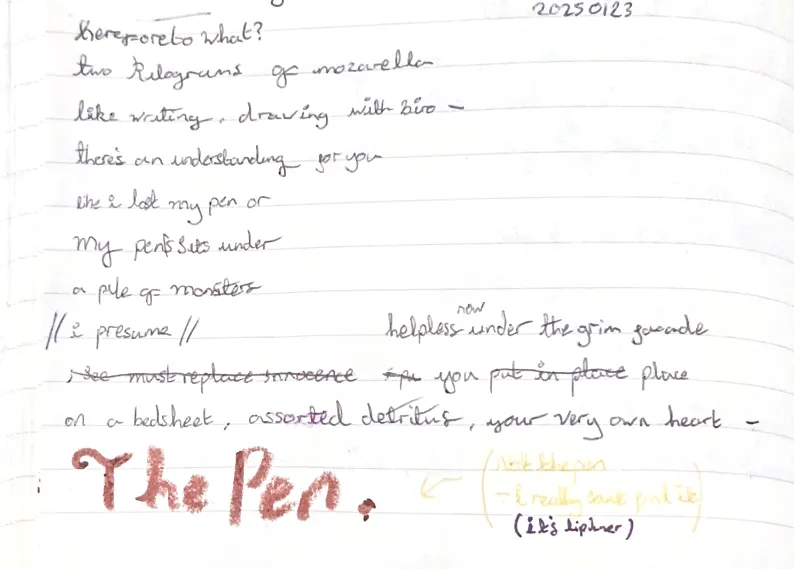 20250123
heretoforeto what?
two kilograms of mozarella
like writing, drawing with biro –
there's an understanding for you
like i lost my pen or
my pen's sits under
a pile of monsters
// i presume // helpless now under the grim facade
, see must replace innocence you put in place place
on a bedsheet, assorted detritus, your very own heart –
The Pen.
(Not the pen
– i really cant find it)
(it's lipliner)